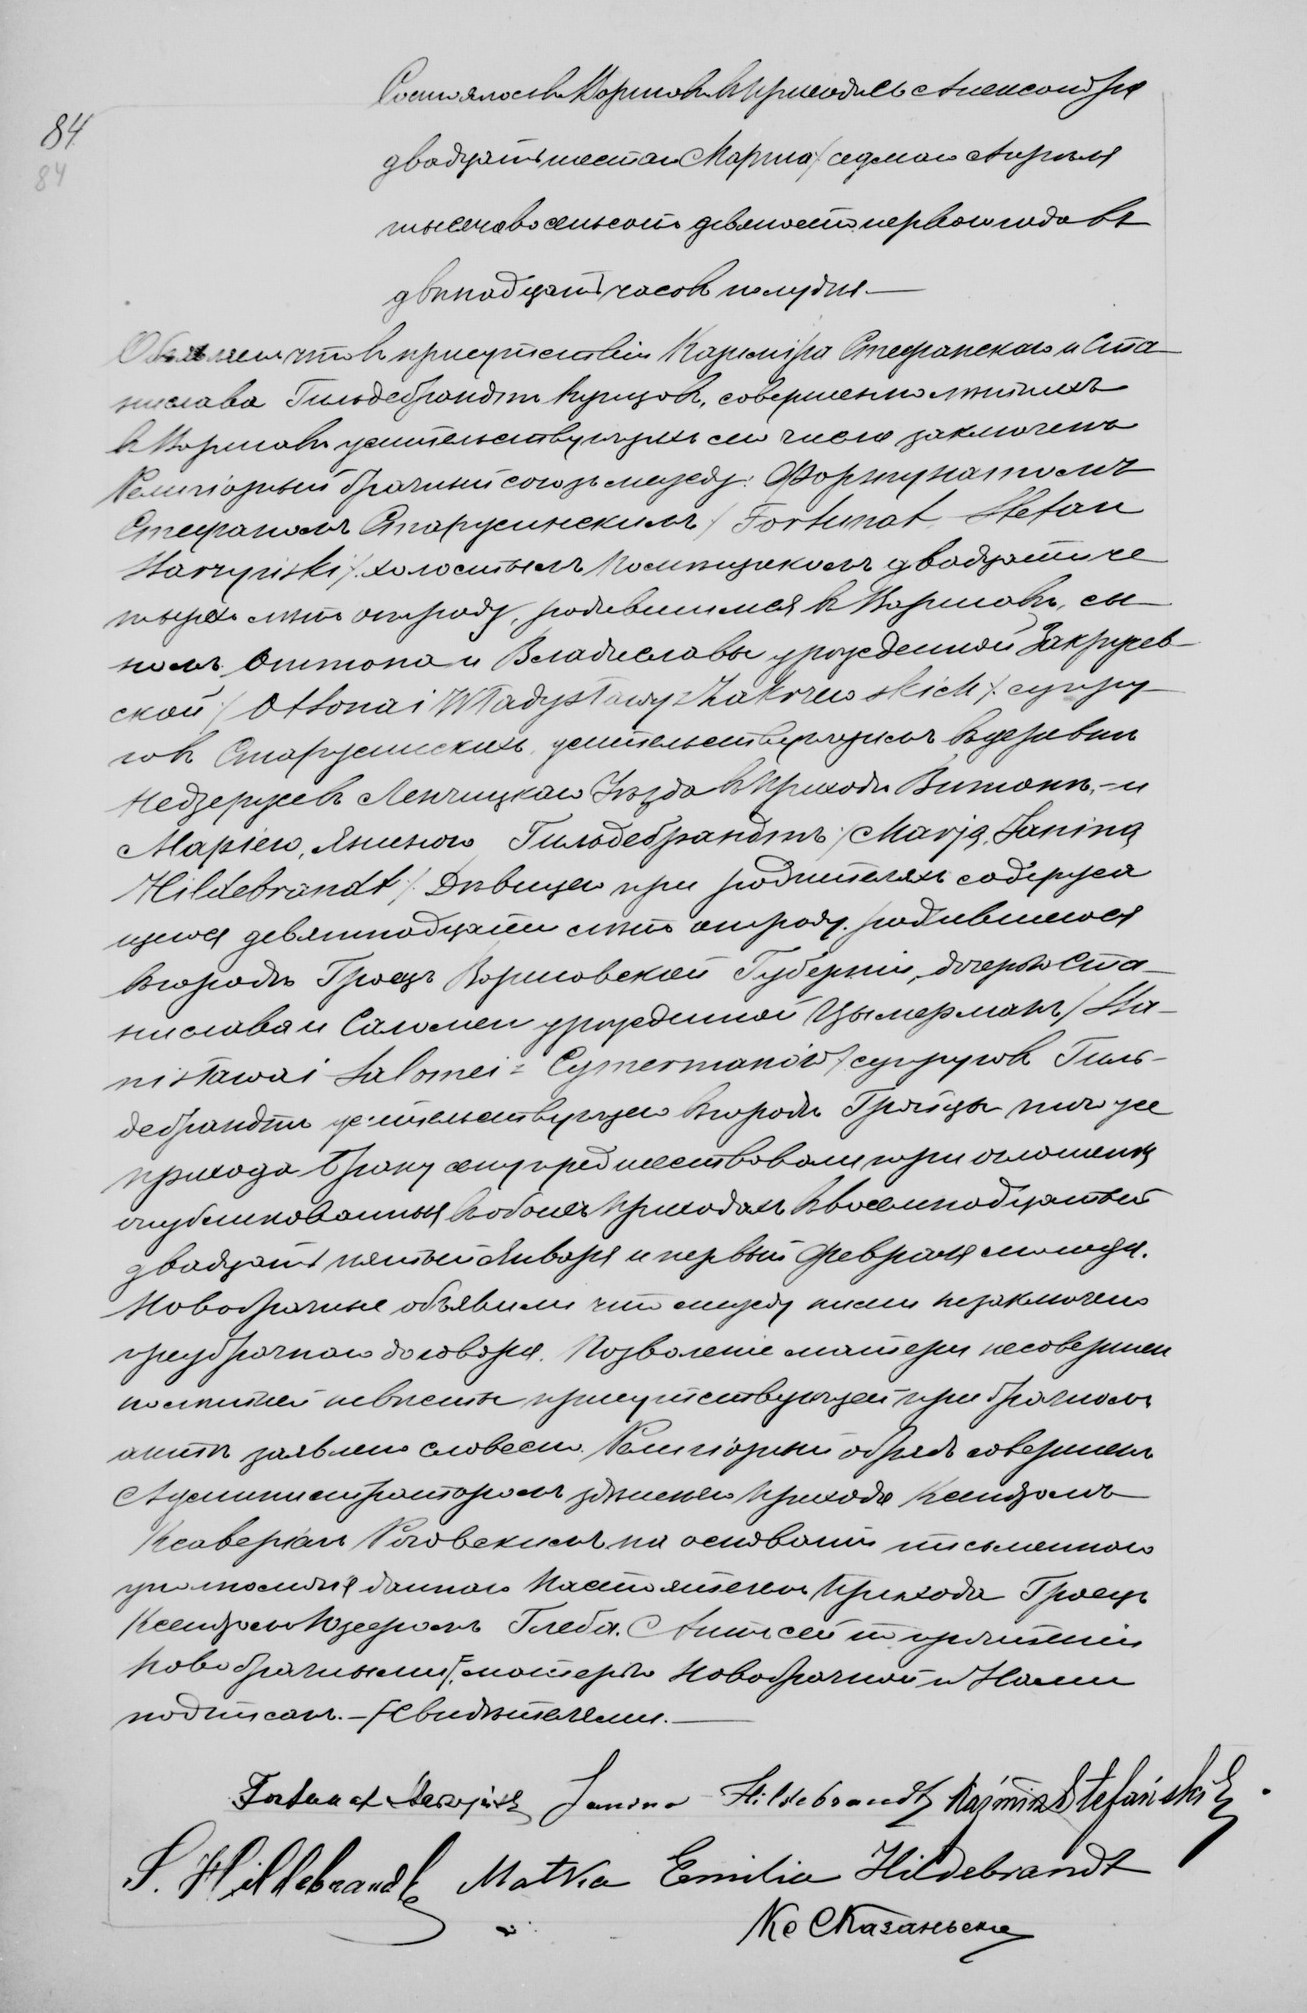 84
84
Состоялось въ Варшавѣ въ приходѣ Св Александра
двадцать шестаго Марта / седмаго Апрѣля
тысяча восемьсотъ девяносто перваго года въ
двѣнадцать часовъ полудня.—
Объявляемъ что въ присутствіи Казиміра Стефанскаго и Ста-
нислава Гильдебрандтъ купцовъ, совершеннолѣтнихъ
въ Варшавѣ жительствующихъ сего числа заключенъ
Религіозный брачный союзъ между: Фортунатомъ
Стефаномъ Старжинскимъ / Fortunat Stefan
Starzyński /: холостымъ помѣщикомъ двадцати че
тырехъ лѣтъ отроду, родившимся въ Варшавѣ, сы-
номъ Оттона и Владиславы урожденной Закржев-
ской / Ottona i Władysławy z Zakrzewskich /: супру-
говъ Старжинскихъ, жительствующимъ въ деревнѣ
Недзержевъ Ленчицкаго Уѣзда въ Приходѣ Витонѣ,- и
Маріею, Яниною Гильдебрандтъ /: Marją, Janiną
Hildebrandt / Дѣвицею при родителяхъ содержа
щеюся девятнадцати лѣтъ отроду. родившеюся
въ городѣ Гроецъ Варшавской Губерніи, дочерью Ста-
нислава и Саломеи урожденной Цымерманъ / Sta-
nisława i Salomei z Cymermanów / супруговъ Гиль-
дебрандтъ жительствующею въ городѣ Гройцы того же
прихода Браку сему предшествовали три оглашенія
опубликованныя въ обоихъ приходахъ въ восемнадцатый
двадцать пятый Января и первый Февраля м. года.
Новобрачные объявили что между ними незаключено
предбрачнаго договора. Позволеніе матери несовершен
нолѣтней невѣсты присутствующей при брачномъ
актѣ заявлено словесно. Религіозный обрядъ совершенъ
Администраторомъ здѣшняго прихода Ксендзомъ
Ксаверіемъ Роговскимъ на основаніи письменнаго
уполномочія даннаго Настоятелемъ прихода Гроецъ
Ксендзомъ Юзефомъ Глеба. Актъ сей по прочтеніи
Новобрачными /: матерью Новобрачной и Нами
подписанъ.— / свидѣтелями.—
Fortunat Starzyński Janina Hildebrandt Kaźmirz Stefański
S. Hildebrandt Matka Emilia Hildebrandt